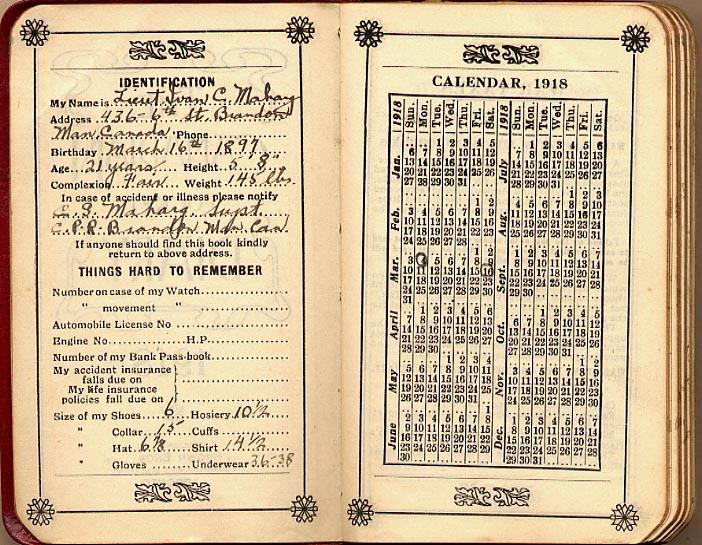 IDENTIFICATION
My Name is Lieut Ivan C. Maharg
Address 436-6th St. Brandon
Man. Canada Phone
Birthday March 16th 1897
Age 21 years Height 5' 8"
Complexion Fair Weight 145 lbs
In case of accident or illness please notify
E. S. Maharg Supt.
C.P.R. Brandon Man. Can.
If anyone should find this book kindly
return to above address.
THINGS HARD TO REMEMBER
Number on case of my Watch
" movement "
Automobile License No
Engine No. H.P.
Number of my Bank Pass-book
My accident insurance
falls due on
My life insurance
policies fall due on
Size of my Shoes 6 Hosiery 10 1/2
" Collar 15 Cuffs
" Hat 6 7/8 Shirt 14 1/2
" Gloves Underwear 36-38
CALENDAR, 1918
1918 Sun. Mon. Tue. Wed. Thu. Fri. Sat.
Jan.
1 2 3 4 5
6 7 8 9 10 11 12
13 14 15 16 17 18 19
20 21 22 23 24 25 26
27 28 29 30 31
Feb.
1 2
3 4 5 6 7 8 9
10 11 12 13 14 15 16
17 18 19 20 21 22 23
24 25 26 27 28
Mar.
1 2
3 4 5 6 7 8 9
10 11 12 13 14 15 16
17 18 19 20 21 22 23
24 25 26 27 28 29 30
31
April
1 2 3 4 5 6
7 8 9 10 11 12 13
14 15 16 17 18 19 20
21 22 23 24 25 26 27
28 29 30
May
1 2 3 4
5 6 7 8 9 10 11
12 13 14 15 16 17 18
19 20 21 22 23 24 25
26 27 28 29 30 31
June
1
2 3 4 5 6 7 8
9 10 11 12 13 14 15
16 17 18 19 20 21 22
23 24 25 26 27 28 29
30
1918 Sun. Mon. Tue. Wed. Thu. Fri. Sat.
July
1 2 3 4 5 6
7 8 9 10 11 12 13
14 15 16 17 18 19 20
21 22 23 24 25 26 27
28 29 30 31
Aug.
1 2 3
4 5 6 7 8 9 10
11 12 13 14 15 16 17
18 19 20 21 22 23 24
25 26 27 28 29 30 31
Sept.
1 2 3 4 5 6 7
8 9 10 11 12 13 14
15 16 17 18 19 20 21
22 23 24 25 26 27 28
29 30
Oct.
1 2 3 4 5
6 7 8 9 10 11 12
13 14 15 16 17 18 19
20 21 22 23 24 25 26
27 28 29 30 31
Nov.
1 2
3 4 5 6 7 8 9
10 11 12 13 14 15 16
17 18 19 20 21 22 23
24 25 26 27 28 29 30
Dec.
1 2 3 4 5 6 7
8 9 10 11 12 13 14
15 16 17 18 19 20 21
22 23 24 25 26 27 28
29 30 31